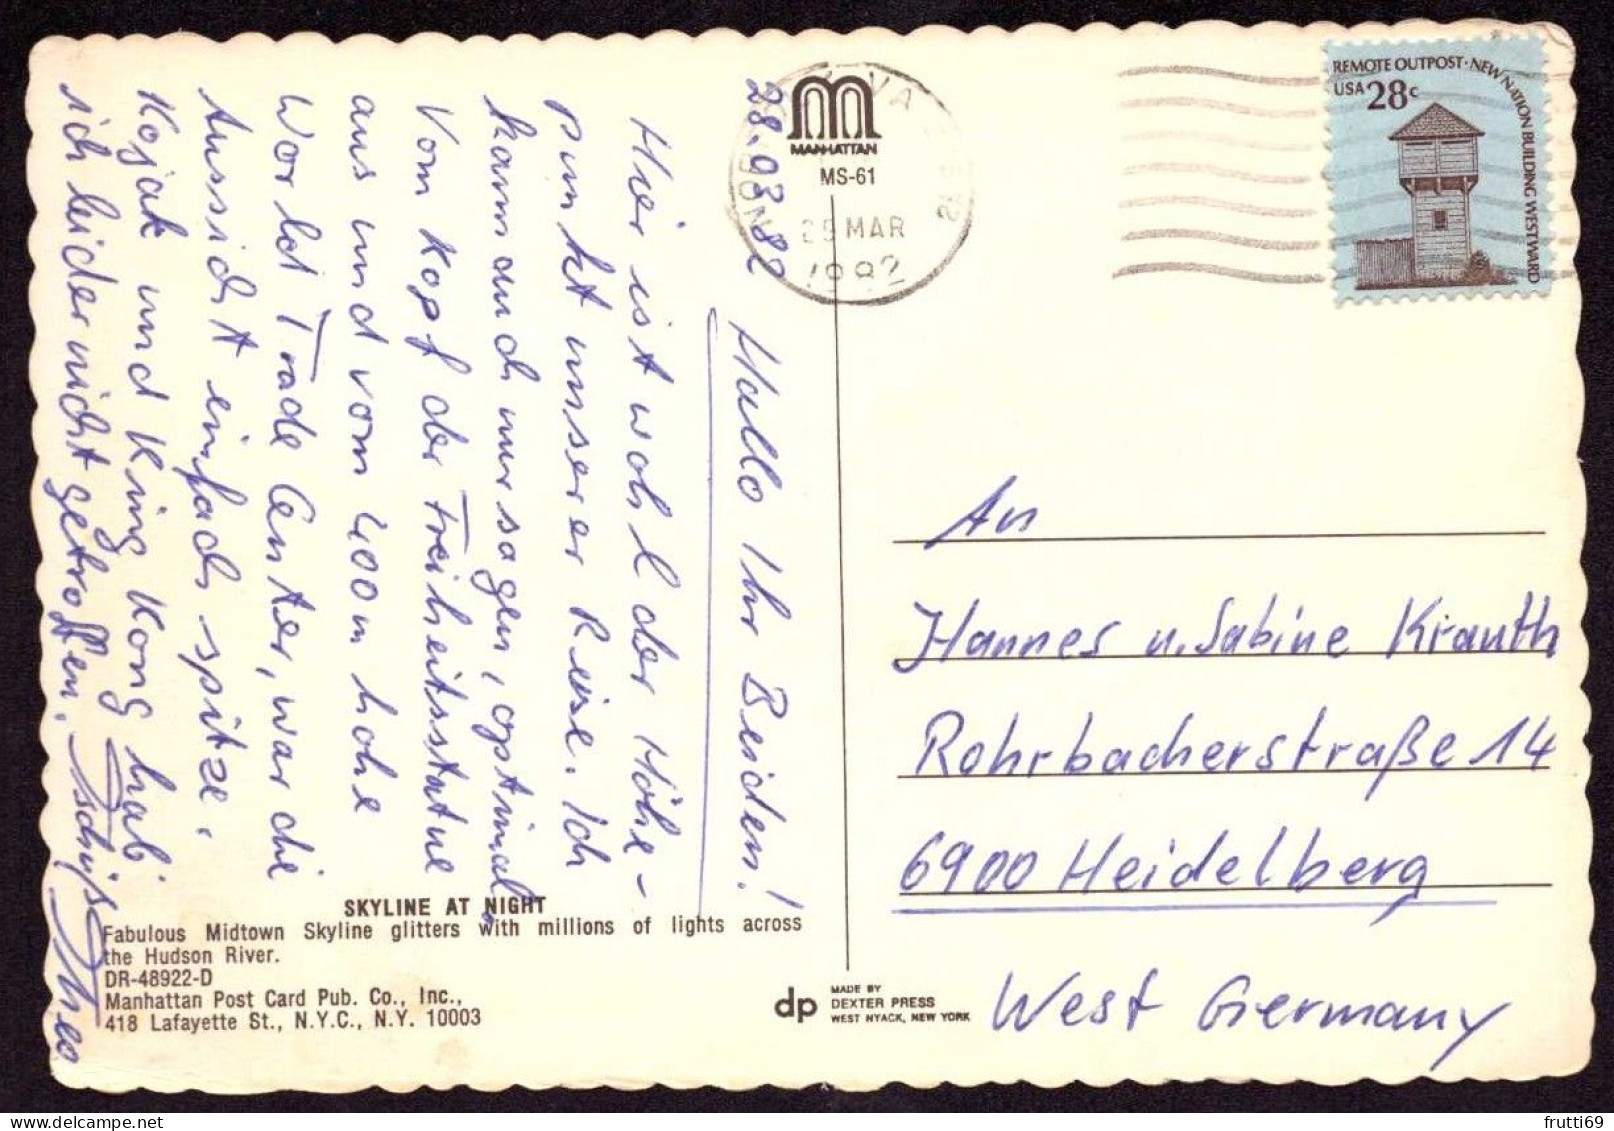 28.03.82
Hallo Ihr Beiden!
Hier ist wohl der Höhe-
punkt unserer Reise. Ich
kann auch nur sagen, optimal.
Vom Kopf der Freiheitsstatue
aus und vom 400 m hohe
Worlet Trade Center, war die
Aussicht einfach spitze.
Kojak und King Kong hab
ich leider nicht getroffen.
Tschüß
Theo
MANHATTAN
MS-61
VA
29 MAR
1982
REMOTE OUTPOST · NEW NATION BUILDING WESTWARD
USA 28c
An
Hannes u. Sabine Krauth
Rohrbacherstraße 14
6900 Heidelberg
West Germany
SKYLINE AT NIGHT
Fabulous Midtown Skyline glitters with millions of lights across
the Hudson River.
DR-48922-D
Manhattan Post Card Pub. Co., Inc.,
418 Lafayette St., N.Y.C., N.Y. 10003
dp
MADE BY
DEXTER PRESS
WEST NYACK, NEW YORK
frutti69